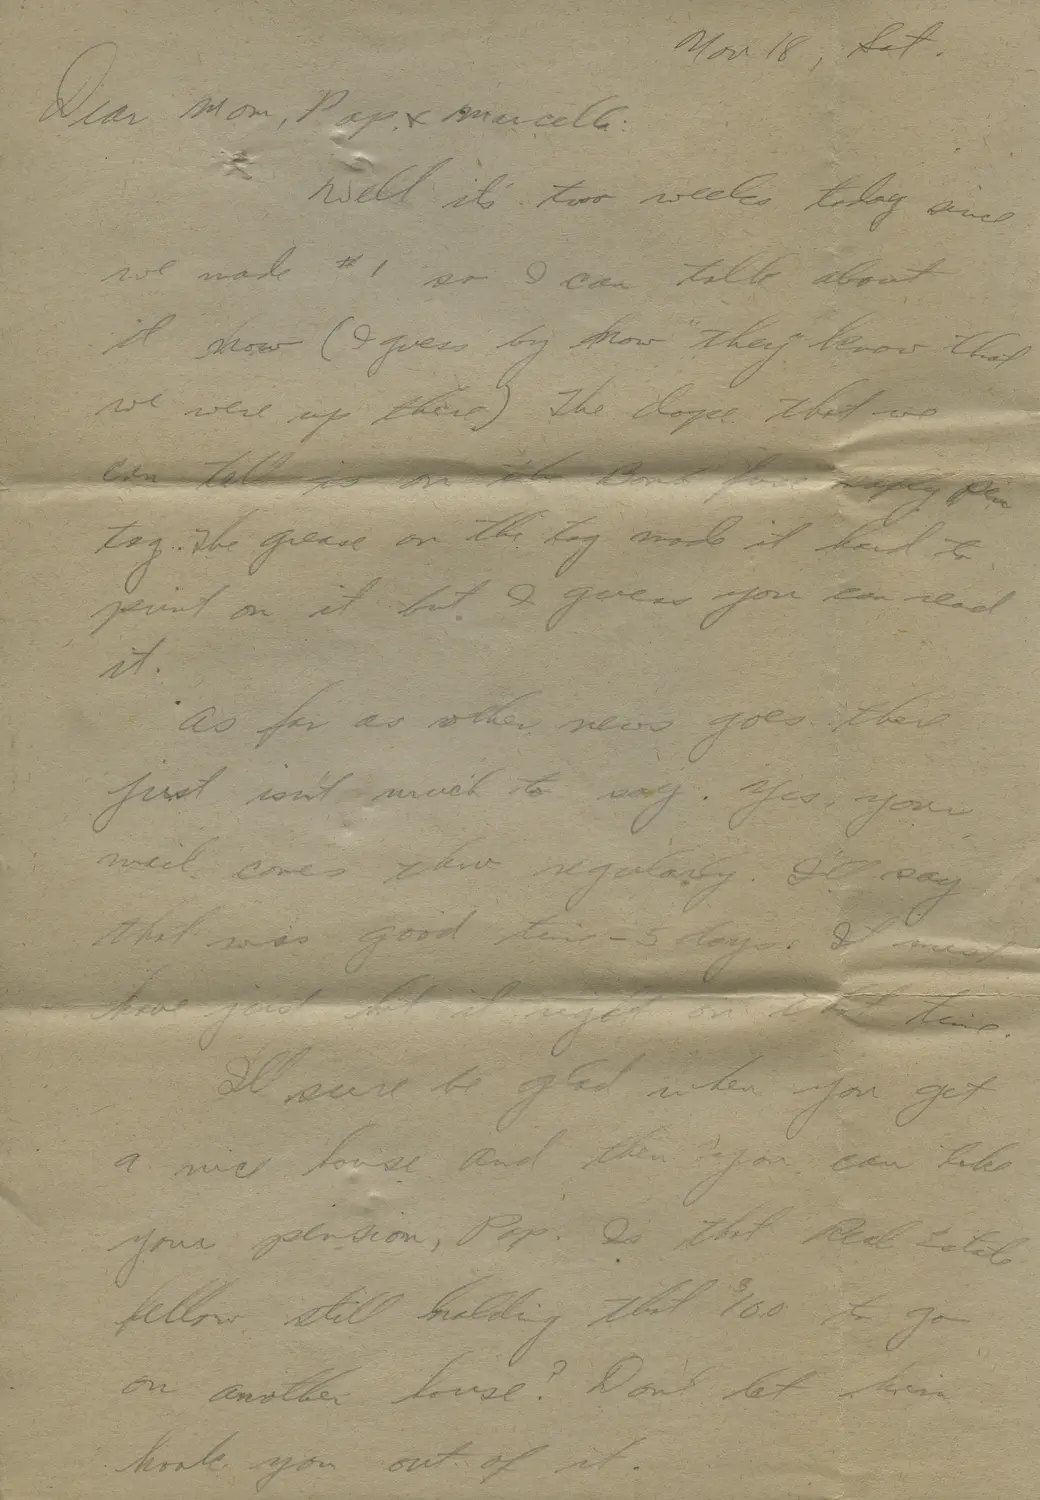 Nov 18, Sat.
Dear Mom, Pop & Marcella:
Well it's two weeks today since
we made #1 so I can talk about
it now (I guess by now "they" know that
we were up there) The dope that we
can tell is on the Bomb fuse
tag. The grease on the tag made it hard to
print on it but I guess you can read
it.
As far as other news goes there
just isn't much to say. Yes, your
mail comes thru regularly. I'll say
that was good time - 5 days. I must
have just hit it right on that time.
I'll sure be glad when you get
a nice house and then you can take
your pension, Pop. Is that Real Estate
fellow still holding that $100 to go
on another house? Don't let him
hook you out of it.